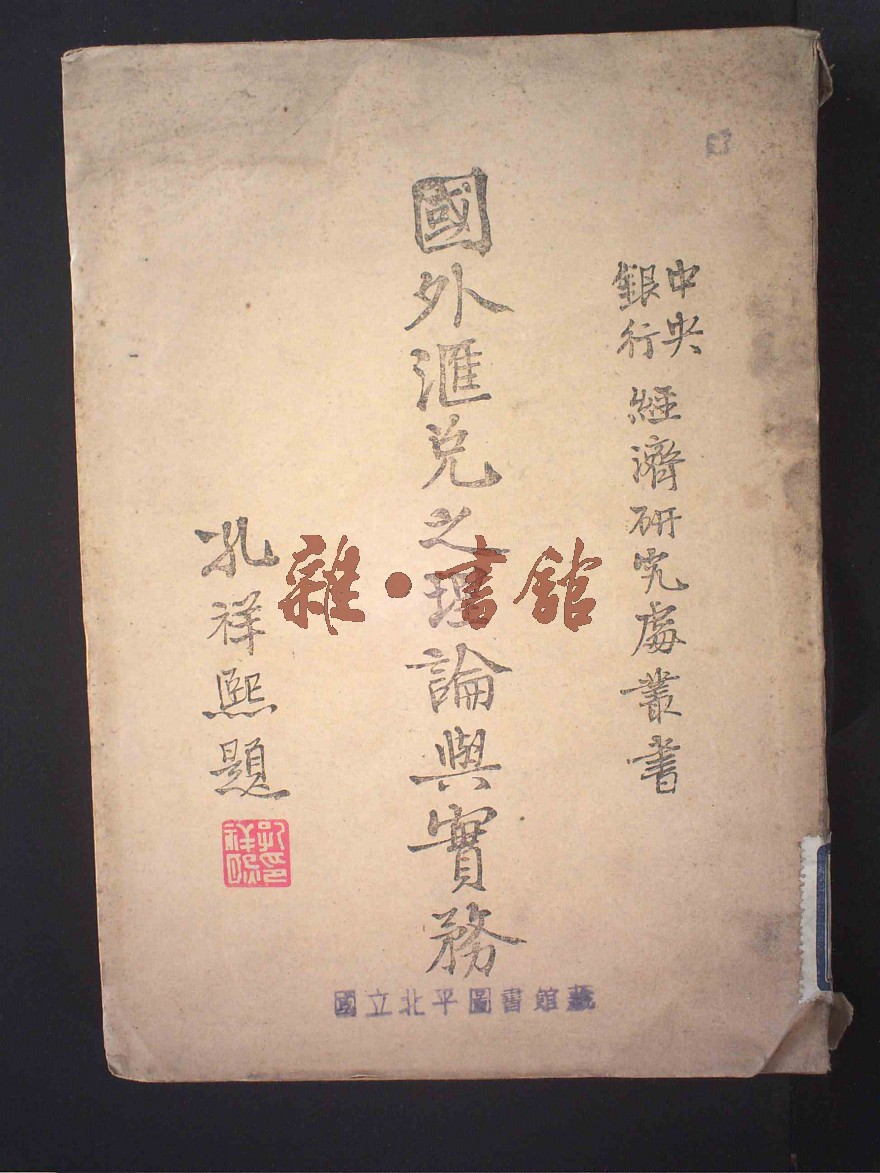 中央銀行經濟研究處叢書
國外滙兌之理論與實務
孔祥熙題
孔祥熙印
雜·書館
國立北平圖書館藏